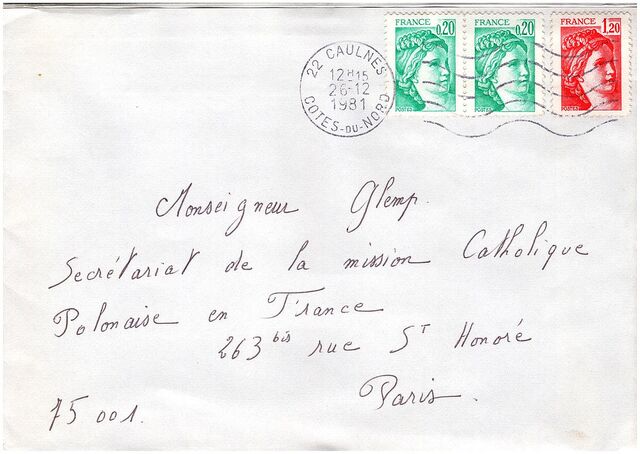 FRANCE 0,20 FRANCE 0,20 FRANCE 1,20
22 CAULNES
12H15
26-12
1981
COTES-DU-NORD
Monseigneur Glemp.
Secrétariat de la mission Catholique
Polonaise en France
263 bis rue St Honoré
Paris.
75001.